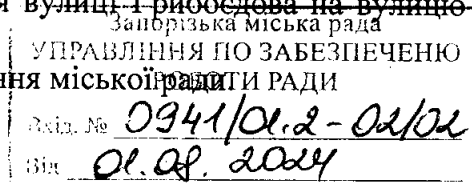 вулиці Грибоєдова на вулицю
Запорізька міська рада
УПРАВЛІННЯ ПО ЗАБЕЗПЕЧЕНЮ
ння міської ради
РОБОТИ РАДИ
Вхід. № 0941/01.2-02/02
Від 01.08.2024